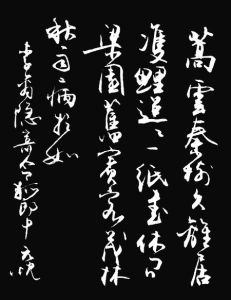 嵩雲秦樹久離居
雙鯉迢迢一紙書休问
梁園舊賓客茂林
秋雨病相如
李商隱寄令狐郎中